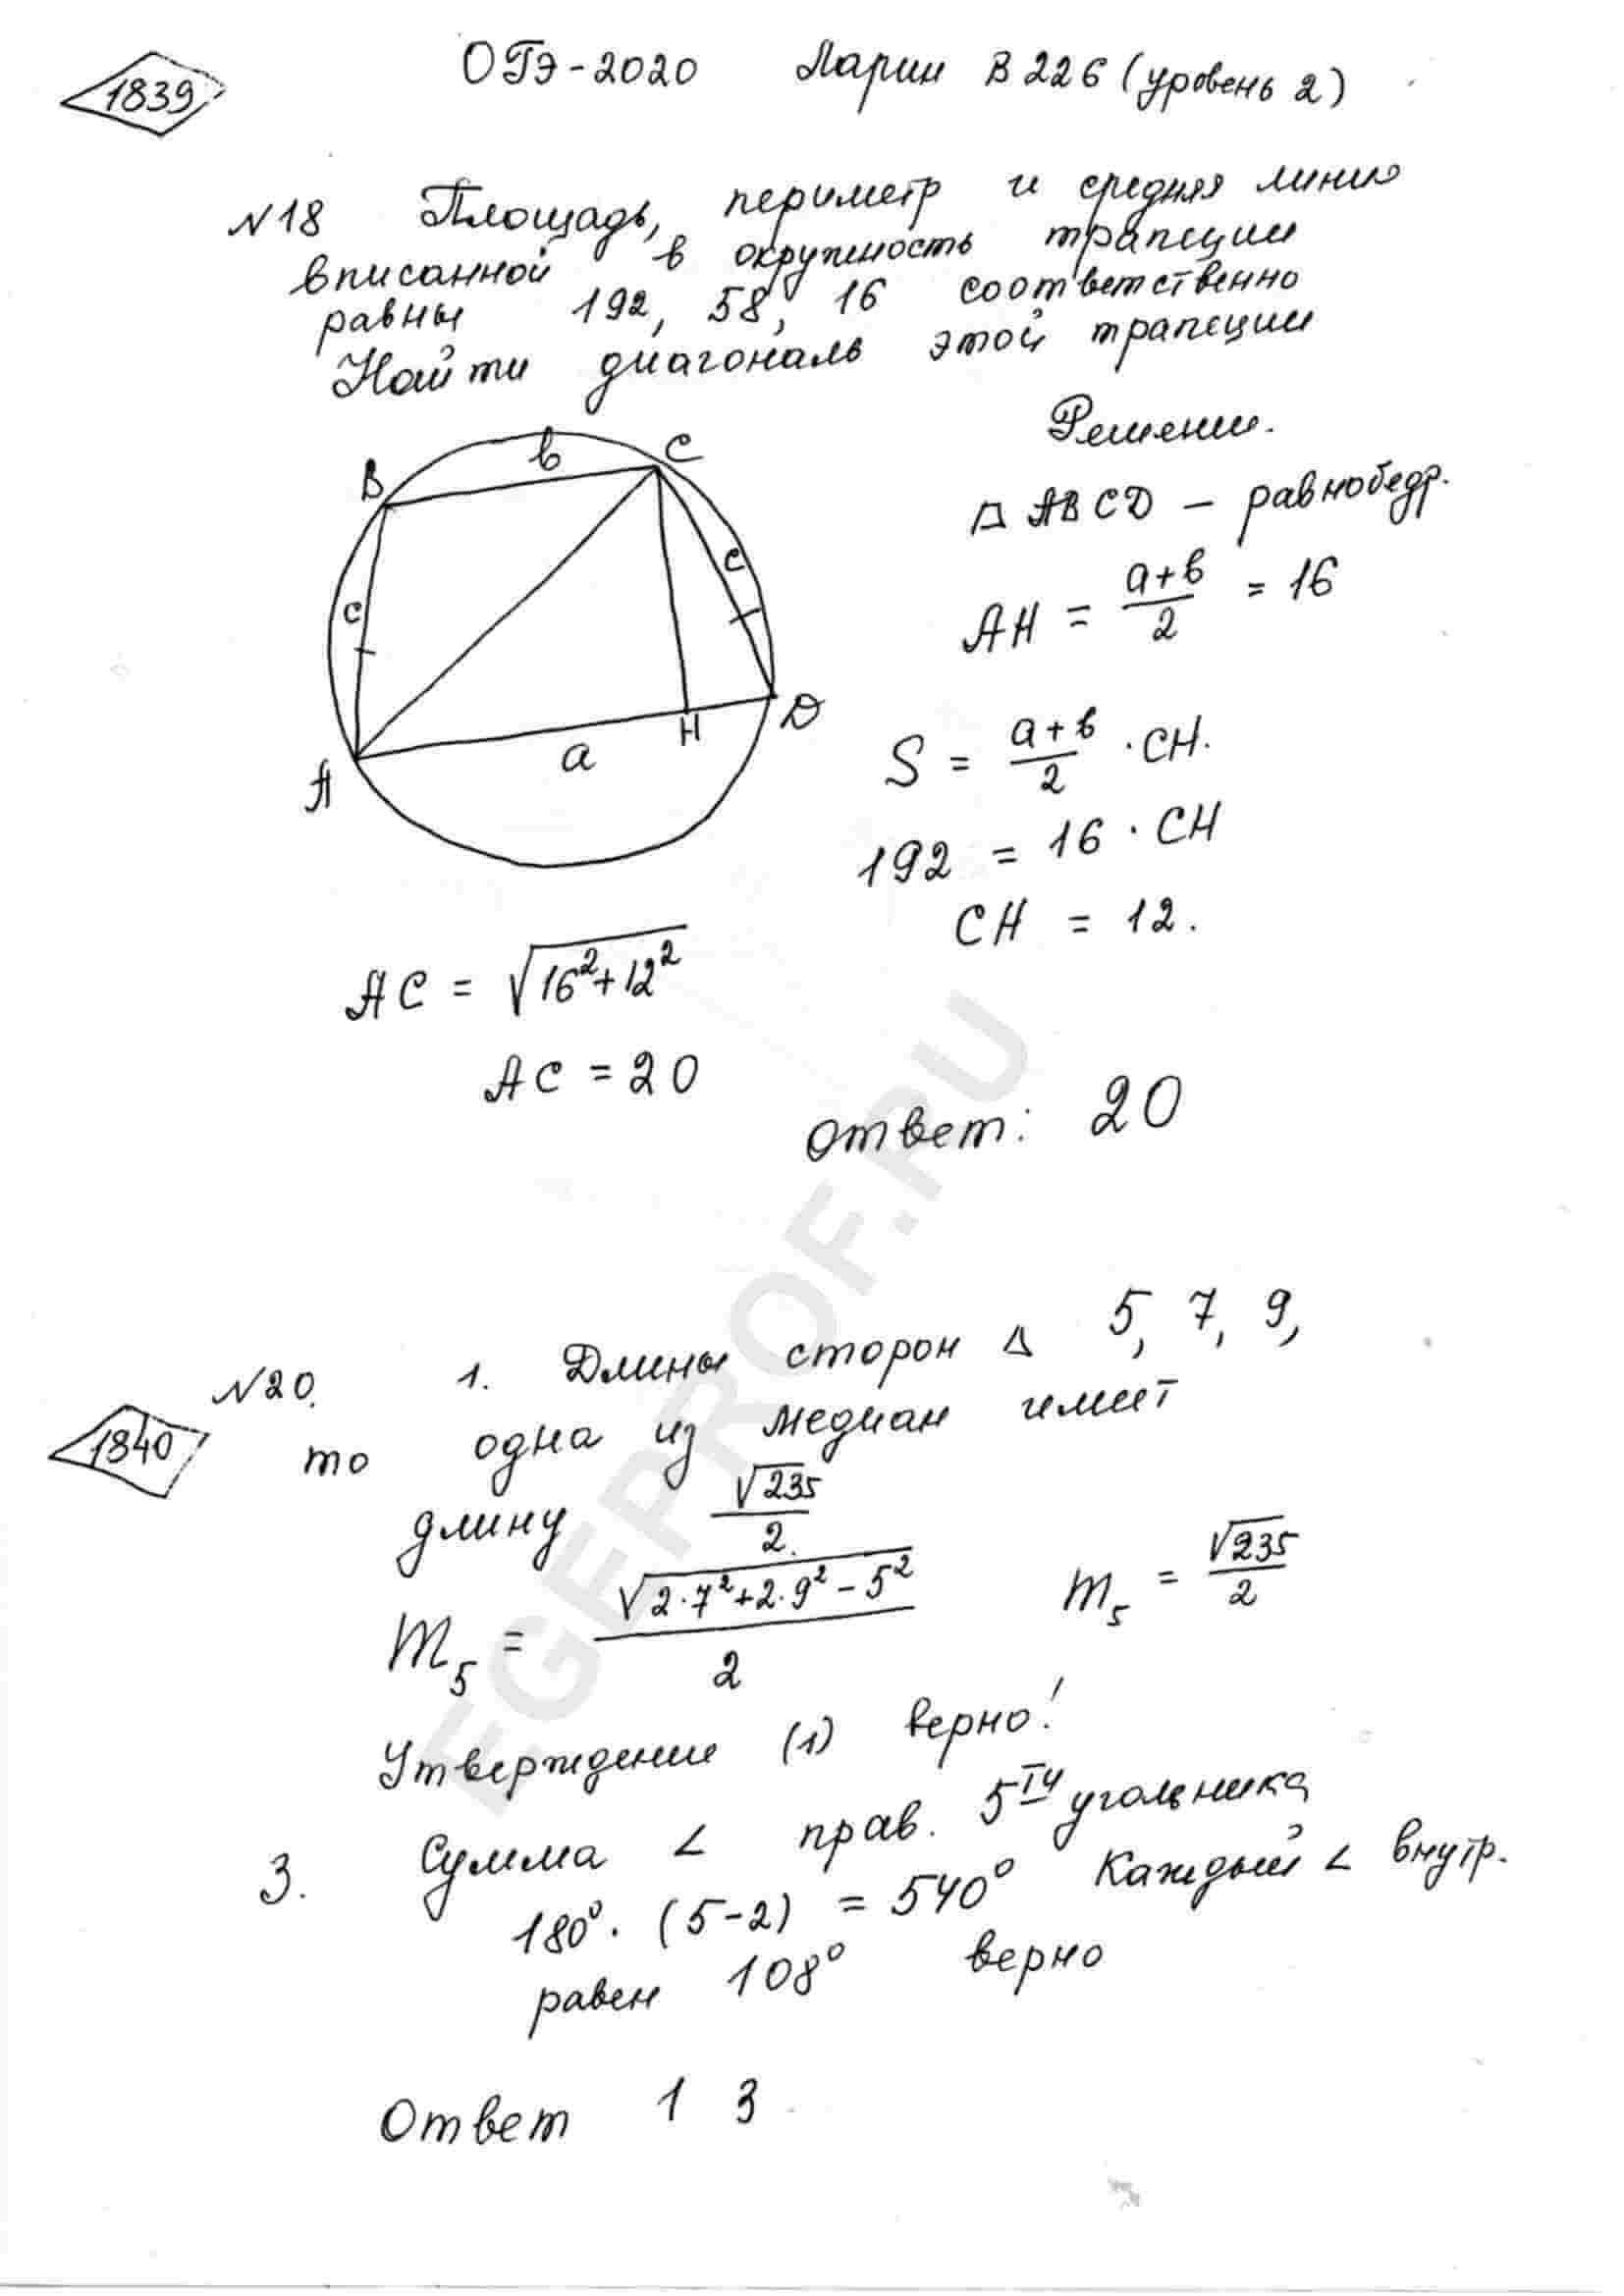 1839
ОГЭ-2020 Ларин В 226 (уровень 2)
№18 Площадь, периметр и средняя линия
вписанной в окружность трапеции
равны 192, 58, 16 соответственно
Найти диагональ этой трапеции
Решение.
B b C
ABCD – равнобедр.
c c
AH = (a+b)/2 = 16
A a H D
S = (a+b)/2 · CH.
192 = 16 · CH
CH = 12.
AC = √(16²+12²)
AC = 20
Ответ: 20
№20. 1. Длины сторон Δ 5, 7, 9,
1840
то одна из медиан имеет
длину √235/2.
m₅ = √(2·7²+2·9²-5²)/2 m₅ = √235/2
Утверждение (1) верно!
3. Сумма ∠ прав. 5ти угольника
180°·(5-2) = 540° Каждый ∠ внутр.
равен 108° верно
Ответ 1 3
EGEPROF.RU